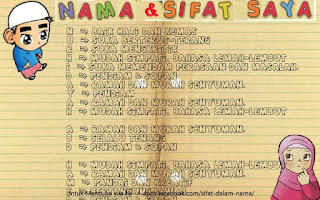 NAMA & SIFAT SAYA
N => BAIK HATI DAN KEMAS
U => SUKA BERTERUS-TERANG
R => SUKA MENGKRITIK
H => MUDAH SIMPATI, BAHASA LEMAH-LEMBUT
I => SUKA MEMENDAM PERASAAN DAN MASALAH.
D => PENDIAM & SOPAN
A => RAMAH DAN MURAH SENYUMAN.
Y => PENDIAM
A => RAMAH DAN MURAH SENYUMAN.
H => MUDAH SIMPATI, BAHASA LEMAH-LEMBUT
A => RAMAH DAN MURAH SENYUMAN.
B => SELALU TENANG
D => PENDIAM & SOPAN
H => MUDAH SIMPATI, BAHASA LEMAH-LEMBUT
A => RAMAH DAN MURAH SENYUMAN.
M => PANDAI DAN
=> RAMAH DAN MURAH SENYUMAN.
Untuk Mencuba sila ke apps.facebook.com/sifat-dalam-nama/